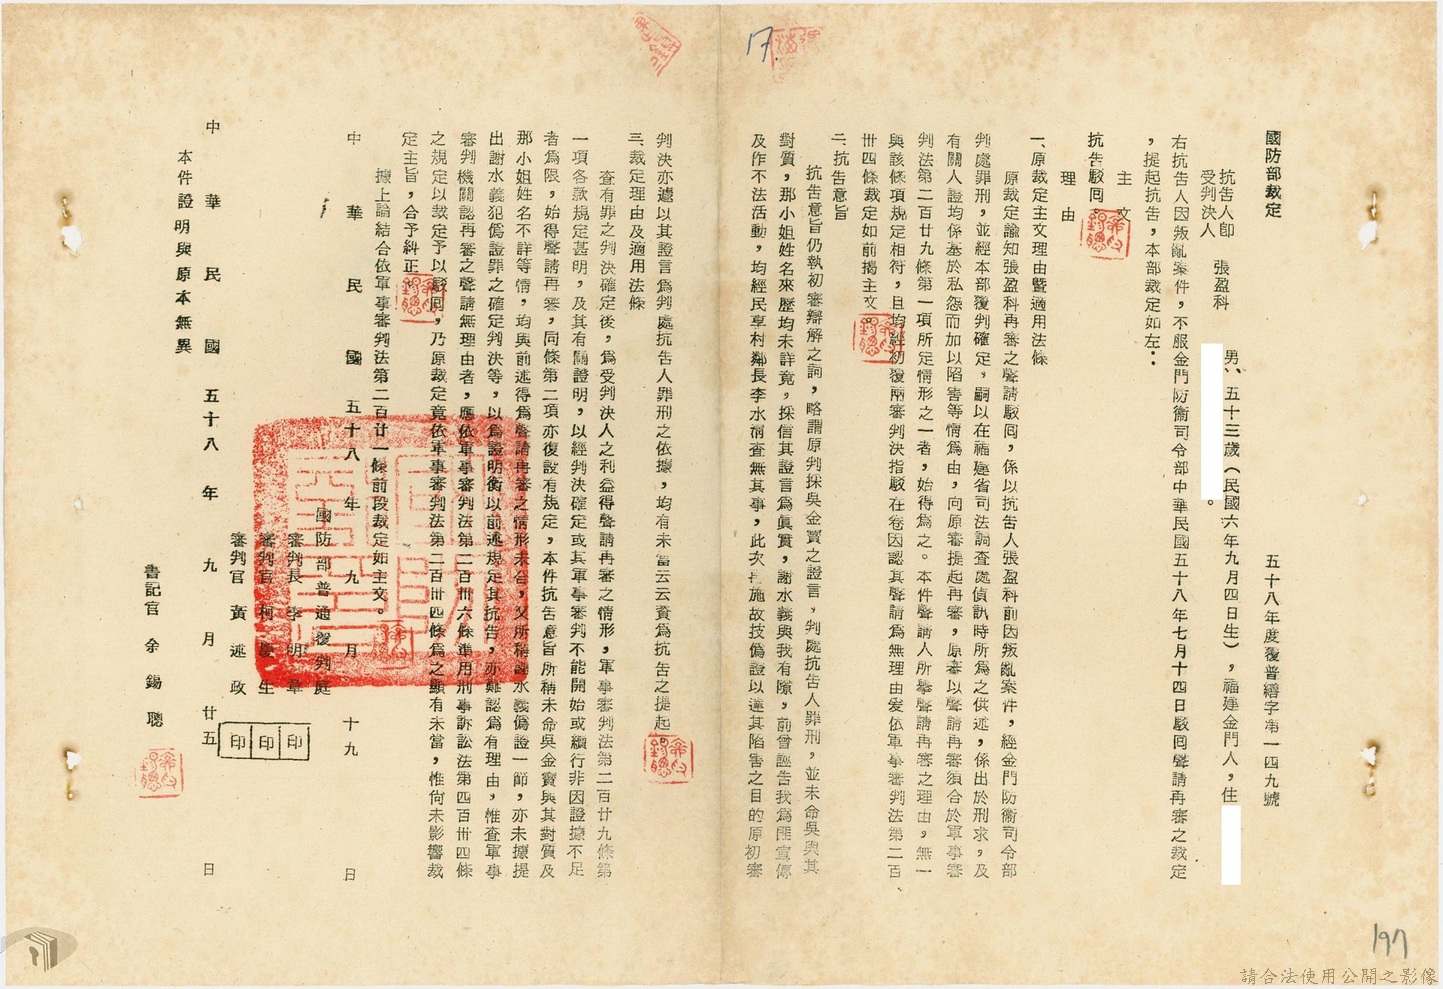 國防部裁定
五十八年度覆普繕字第一四九號
抗告人即
受判決人　張盈科　男，五十三歲（民國六年九月四日生），福建金門人，住
。
右抗告人因叛亂案件，不服金門防衛司令部中華民國五十八年七月十四日駁回聲請再審之裁定
，提起抗告，本部裁定如左：
主文
抗告駁回
理由
一、原裁定主文理由暨適用法條
原裁定諭知張盈科再審之聲請駁回，係以抗告人張盈科前因叛亂案件，經金門防衛司令部
判處罪刑，並經本部覆判確定，嗣以在福建省司法調查處偵訊時所為之供述，係出於刑求，及
有關人證均係基於私怨而加以陷害等情為由，向原審提起再審，原審以聲請再審須合於軍事審
判法第二百廿九條第一項所定情形之一者，始得為之。本件聲請人所舉聲請再審之理由，無一
與該條項規定相符，且均經初覆兩審判決指駁在卷因認其聲請為無理由爰依軍事審判法第二百
卅四條裁定如前揭主文。
二、抗告意旨
抗告意旨仍執初審辯解之詞，略謂原判採吳金寶之證言，判處抗告人罪刑，並未命吳與其
對質，那小姐姓名來歷均未詳究，採信其證言為眞實，謝水義與我有隙，前曾誣告我為匪宣傳
及作不法活動，均經民享村鄰長李水清查無其事，此次再施故技偽證以達其陷害之目的原初審
判決亦遽以其證言為判處抗告人罪刑之依據，均有未當云云資為抗告之提起。
三、裁定理由及適用法條
查有罪之判決確定後，為受判決人之利益得聲請再審之情形，軍事審判法第二百廿九條第
一項各款規定甚明，及其有關證明，以經判決確定或其軍事審判不能開始或續行非因證據不足
者為限，始得聲請再審，同條第二項亦復設有規定，本件抗告意旨所稱未命吳金寶與其對質及
那小姐姓名不詳等情，均與前述得為聲請再審之情形未合，又所稱謝水義偽證一節，亦未據提
出謝水義犯偽證罪之確定判決等，以為證明衡以前述規定其抗告，亦難認為有理由，惟查軍事
審判機關認再審之聲請無理由者，應依軍事審判法第二百卅六條準用刑事訴訟法第四百卅四條
之規定以裁定予以駁回，乃原裁定竟依軍事審判法第二百卅四條為之顯有未當，惟尙未影響裁
定主旨，合予糾正。
據上論結合依軍事審判法第二百廿一條前段裁定如主文。
中華民國五十八年九月十九日
國防部普通覆判庭
審判長　李明章　印
審判官　柯慶生　印
審判官　黃述政　印
中華民國五十八年九月廿五日
本件證明與原本無異
書記官　余錫聰
17.
197
請合法使用公開之影像